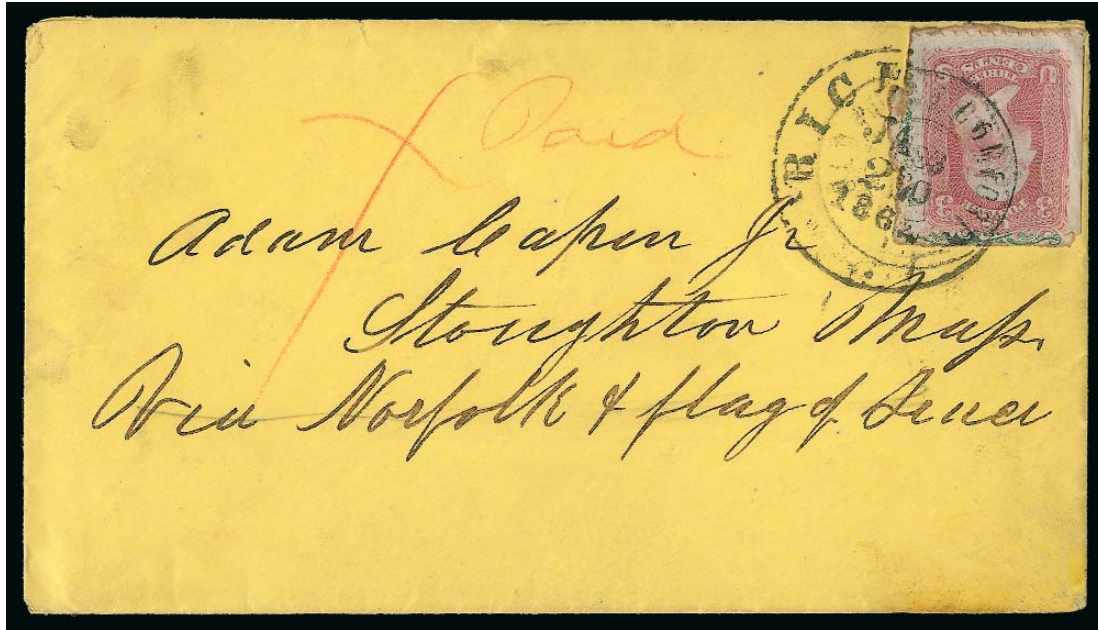 Paid
RICH
THREE
CENTS
U
3
Adam Capen Jr
Stoughton Mass.
Via Norfolk & flag of Truce